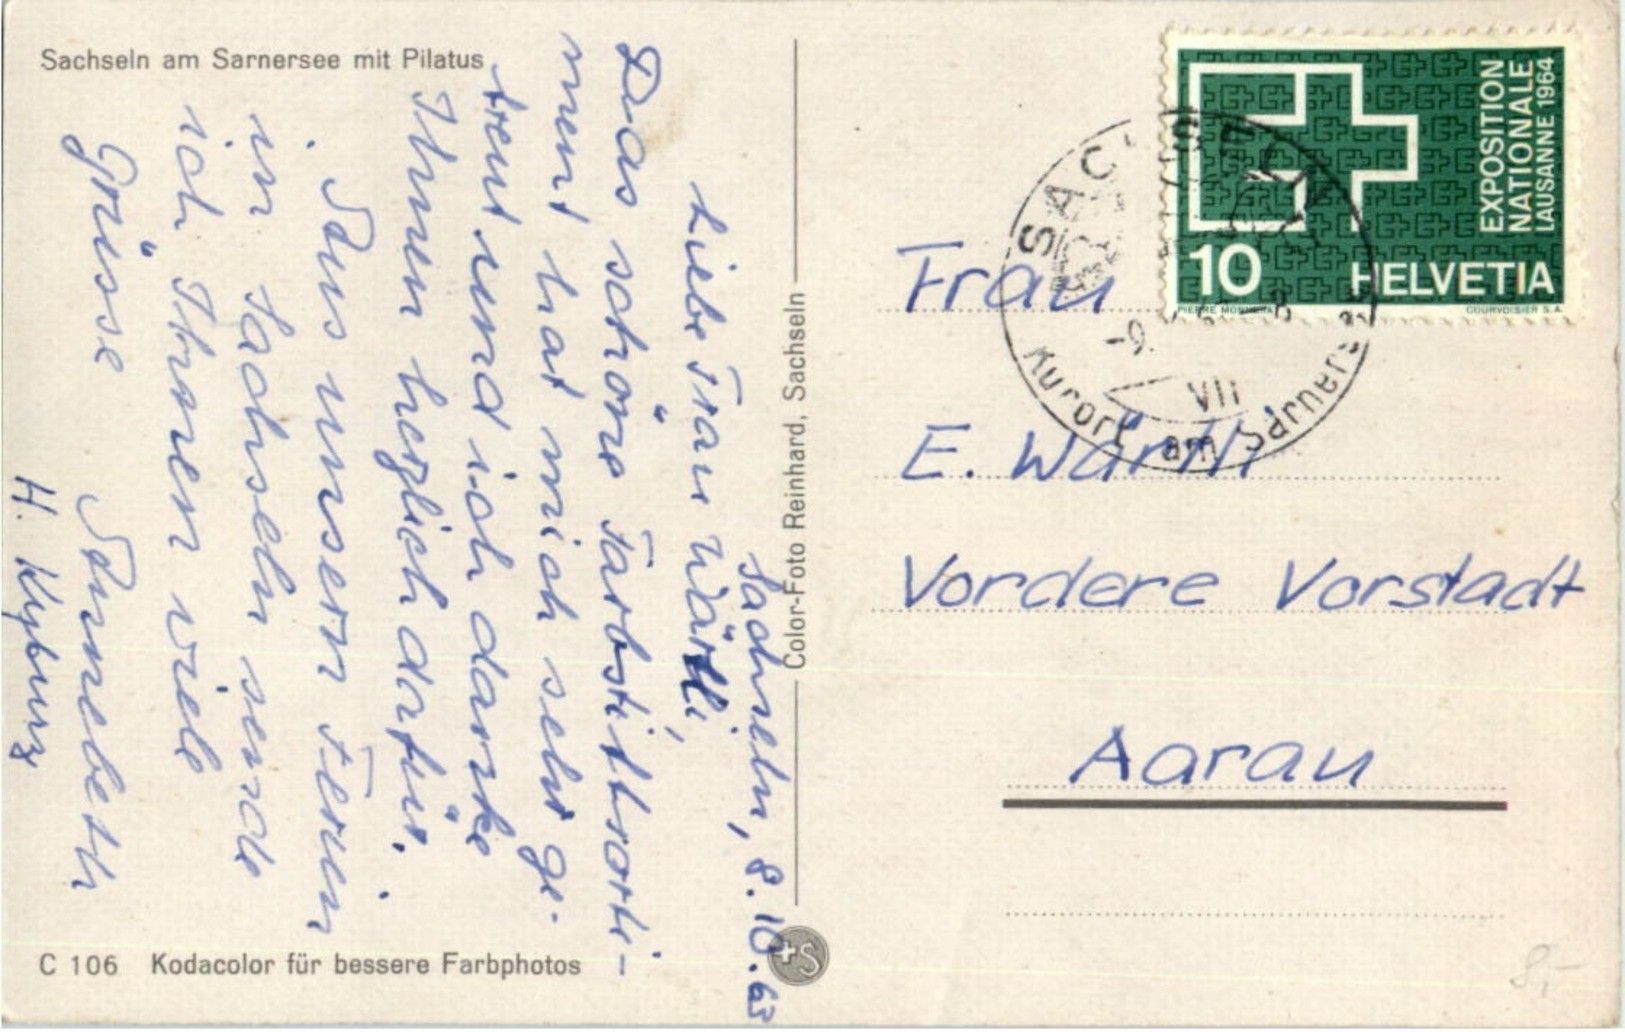 Sachseln am Sarnersee mit Pilatus
Sachseln, 8.10.63
Liebe Frau Wärtli,
Das schöne Farbstiftsorti-
ment hat mich sehr ge-
freut und ich danke
Ihnen herzlich dafür.
Aus unsern Ferien
in Sachseln sende
ich Ihnen viele
Grüsse Annebeth
H. Kyburz
C 106 Kodacolor für bessere Farbphotos
Color-Foto Reinhard, Sachseln
+S
EXPOSITION
NATIONALE
LAUSANNE 1964
10 HELVETIA
PIERRE MONNERAT COURVOISIER S.A.
SACHSELN
-9.
VII
Kurort am Sarnersee
Frau
E. Wärtli
Vordere Vorstadt
Aarau
8,-